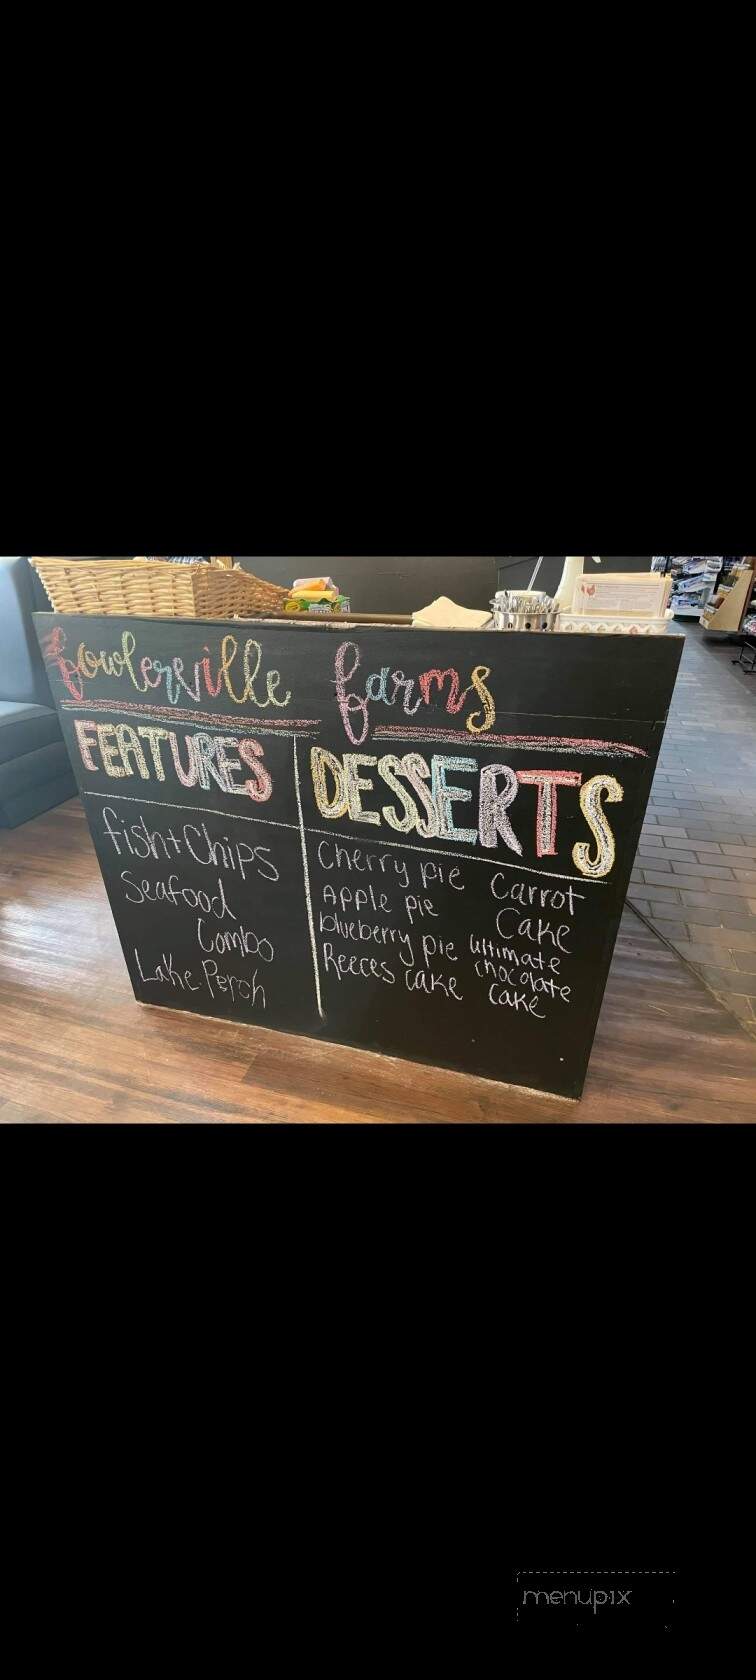 fowlerville farms
FEATURES
fish + Chips
Seafood
Combo
Lake Perch
DESSERTS
Cherry pie
Apple pie
blueberry pie
Reeces cake
Carrot
Cake
ultimate
chocolate
cake
menupix